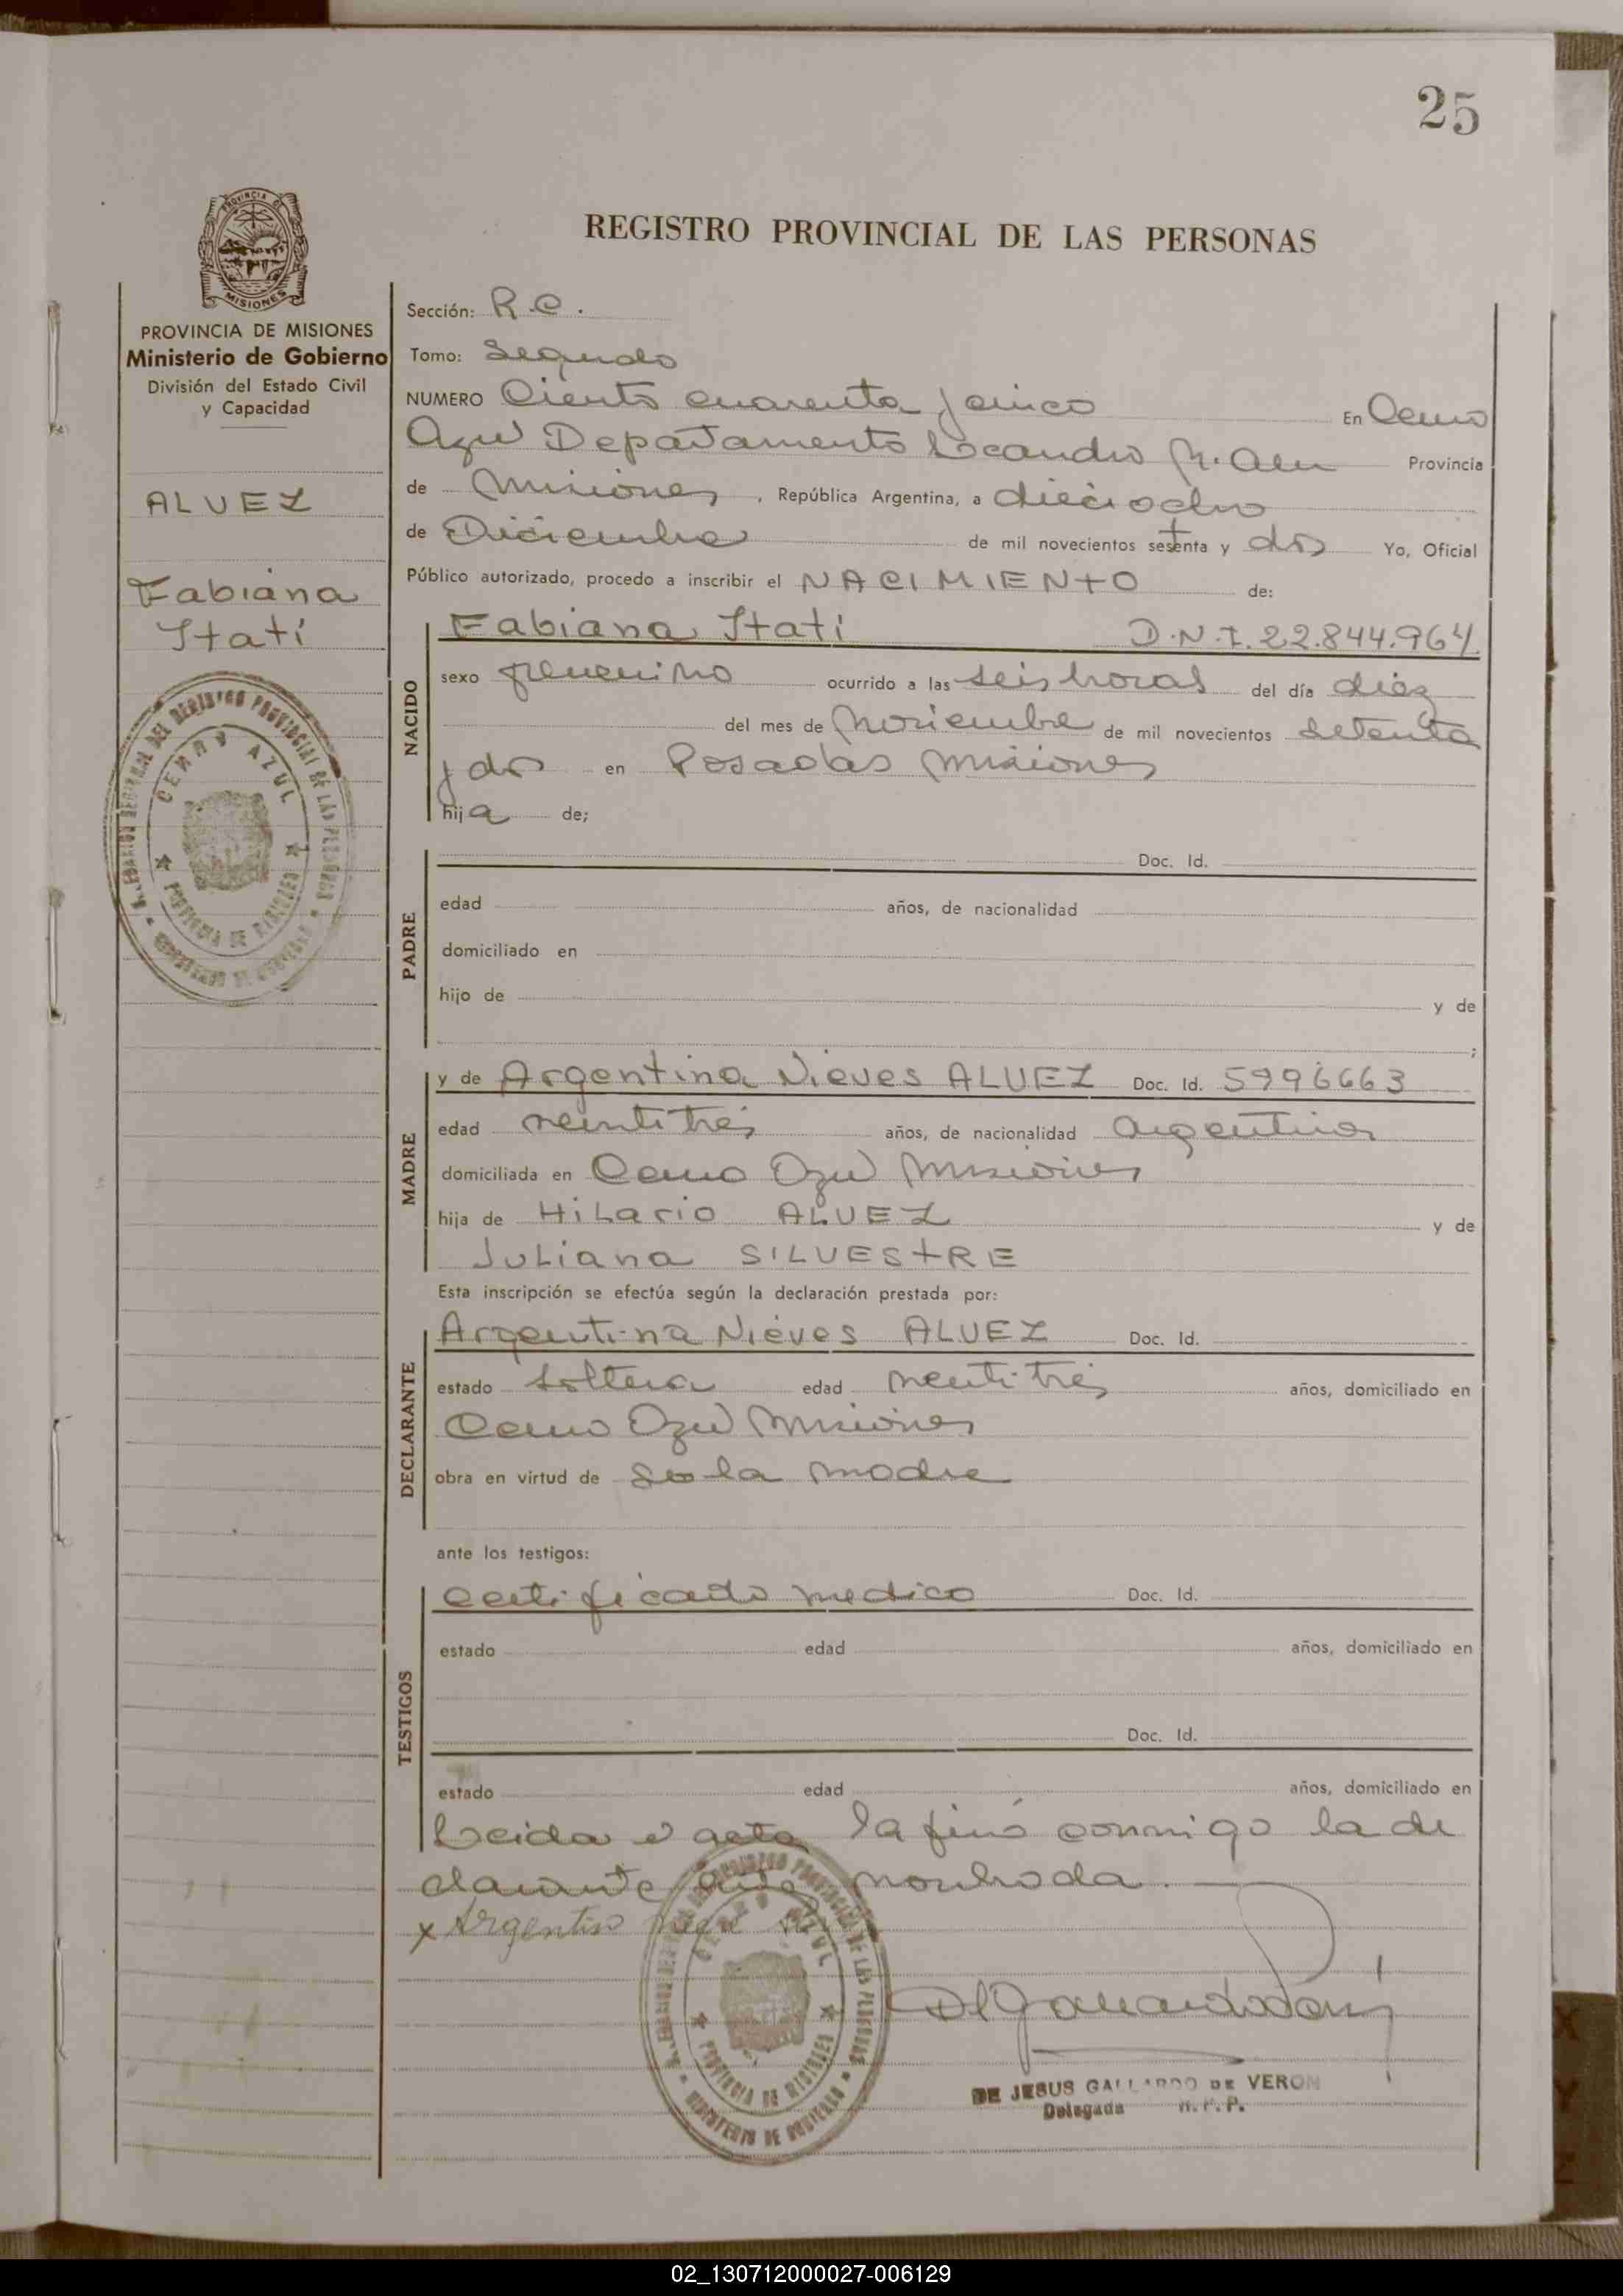 25
REGISTRO PROVINCIAL DE LAS PERSONAS
PROVINCIA DE MISIONES
Ministerio de Gobierno
División del Estado Civil
y Capacidad
ALVEZ
Fabiana
Itatí
Sección: R.C.
Tomo: Segundo
NUMERO Ciento cuarenta y cinco En Cerro
Azul Departamento Leandro N. Alem Provincia
de Misiones, República Argentina, a dieciocho
de Diciembre de mil novecientos setenta y dos Yo, Oficial
Público autorizado, procedo a inscribir el NACIMIENTO de:
NACIDO
Fabiana Itatí D.N.I. 22.844.964
sexo femenino ocurrido a las seis horas del día diez
del mes de Noviembre de mil novecientos setenta
y dos en Posadas Misiones
hija de;
PADRE
Doc. Id.
edad años, de nacionalidad
domiciliado en
hijo de y de
;
MADRE
y de Argentina Nieves ALVEZ Doc. Id. 5996663
edad veintitres años, de nacionalidad argentina
domiciliada en Cerro Azul Misiones
hija de Hilario ALVEZ y de
Juliana SILVESTRE
Esta inscripción se efectúa según la declaración prestada por:
DECLARANTE
Argentina Nieves ALVEZ Doc. Id.
estado soltera edad veintitres años, domiciliado en
Cerro Azul Misiones
obra en virtud de ser la madre
ante los testigos:
TESTIGOS
certificado medico Doc. Id.
estado edad años, domiciliado en
Doc. Id.
estado edad años, domiciliado en
Leida el acta la firmó conmigo la de
clarante ante nombrada.
x Argentina
CERRO AZUL
PROVINCIA DE MISIONES
MINISTERIO DE GOBIERNO
DE JESUS GALLARDO DE VERON
Delegada R.P.P.
02_130712000027-006129